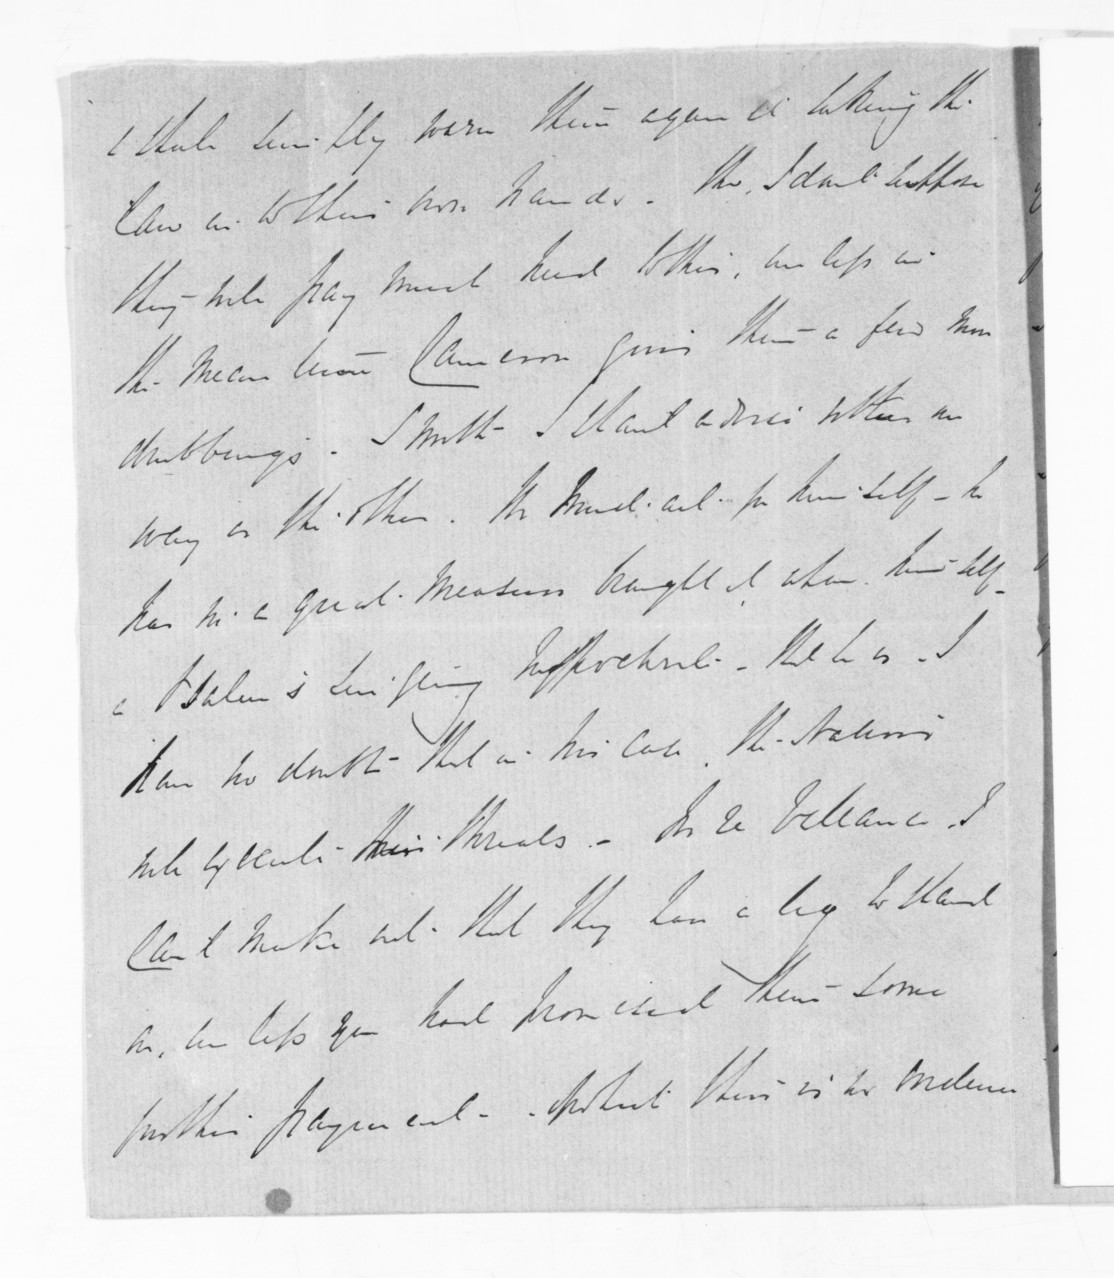 & shall simply warn them against taking the
law in to their own hands. Tho, I don't suppose
they will pay much heed to this, unless in
the mean time Cameron gives them a few more
drubbings. Smith I shant advise either one
way or the other. He must act for himself - he
has in a great measure brought it upon himself -
a Psalm singing hypocrite - that he is - I
have no doubt that in his case, the Natives
will execute their threats. - In re Tollance. I
Cant make out that they have a leg to stand
on, unless you had promised them some
further payment - of that there is no evidence